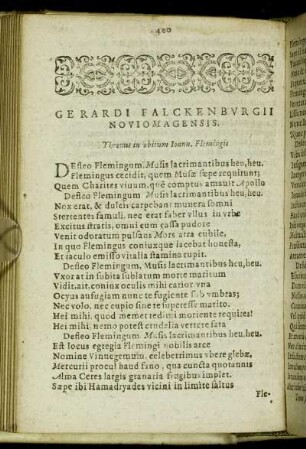 400
GERARDI FALCKENBVRGII
NOVIOMAGENSIS.
Threnus in obitum Ioann. Flemingis
Defleo Flemingum, Musis lacrimantibus heu, heu.
Flemingus cecidit, quem Musæ sæpe requirunt;
Quem Charites viuum, quē comptus amauit Apollo
Defleo Flemingum Musis lacrimantibus heu, heu.
Nox erat, & dulces carpebant munera somni
Stertentes famuli, nec erat faber vllus in vrbe
Excitus stratis, omni cum cassa pudore
Venit odoratum pulsans Mors atra cubile,
In quo Flemingus coniuxque iacebat honesta,
Et iaculo emisso vitalia stamina rupit.
Defleo Flemingum, Musis lacrimantibus heu, heu.
Vxor at in subita sublatum morte maritum
Vidit, ait, coniux oculis mihi carior vna
Ocyus aufugiam nunc te fugiente sub vmbras;
Nec volo, nec cupio sine te superesse marito.
Hei mihi, quod memet redimi moriente requires!
Hei mihi, nemo potest crudelia vertere fata
Defleo Flemingum, Musis lacrimantibus heu, heu.
Est locus egregia Flemingi nobilis arce
Nomine Vinnegemum, celeberrimus vbere glebæ,
Mercurii procul haud fano, qua cuncta quotannis
Alma Ceres largis granaria frugibus implet.
Sæpe ibi Hamadryades vicini in limite saltus
Fle-